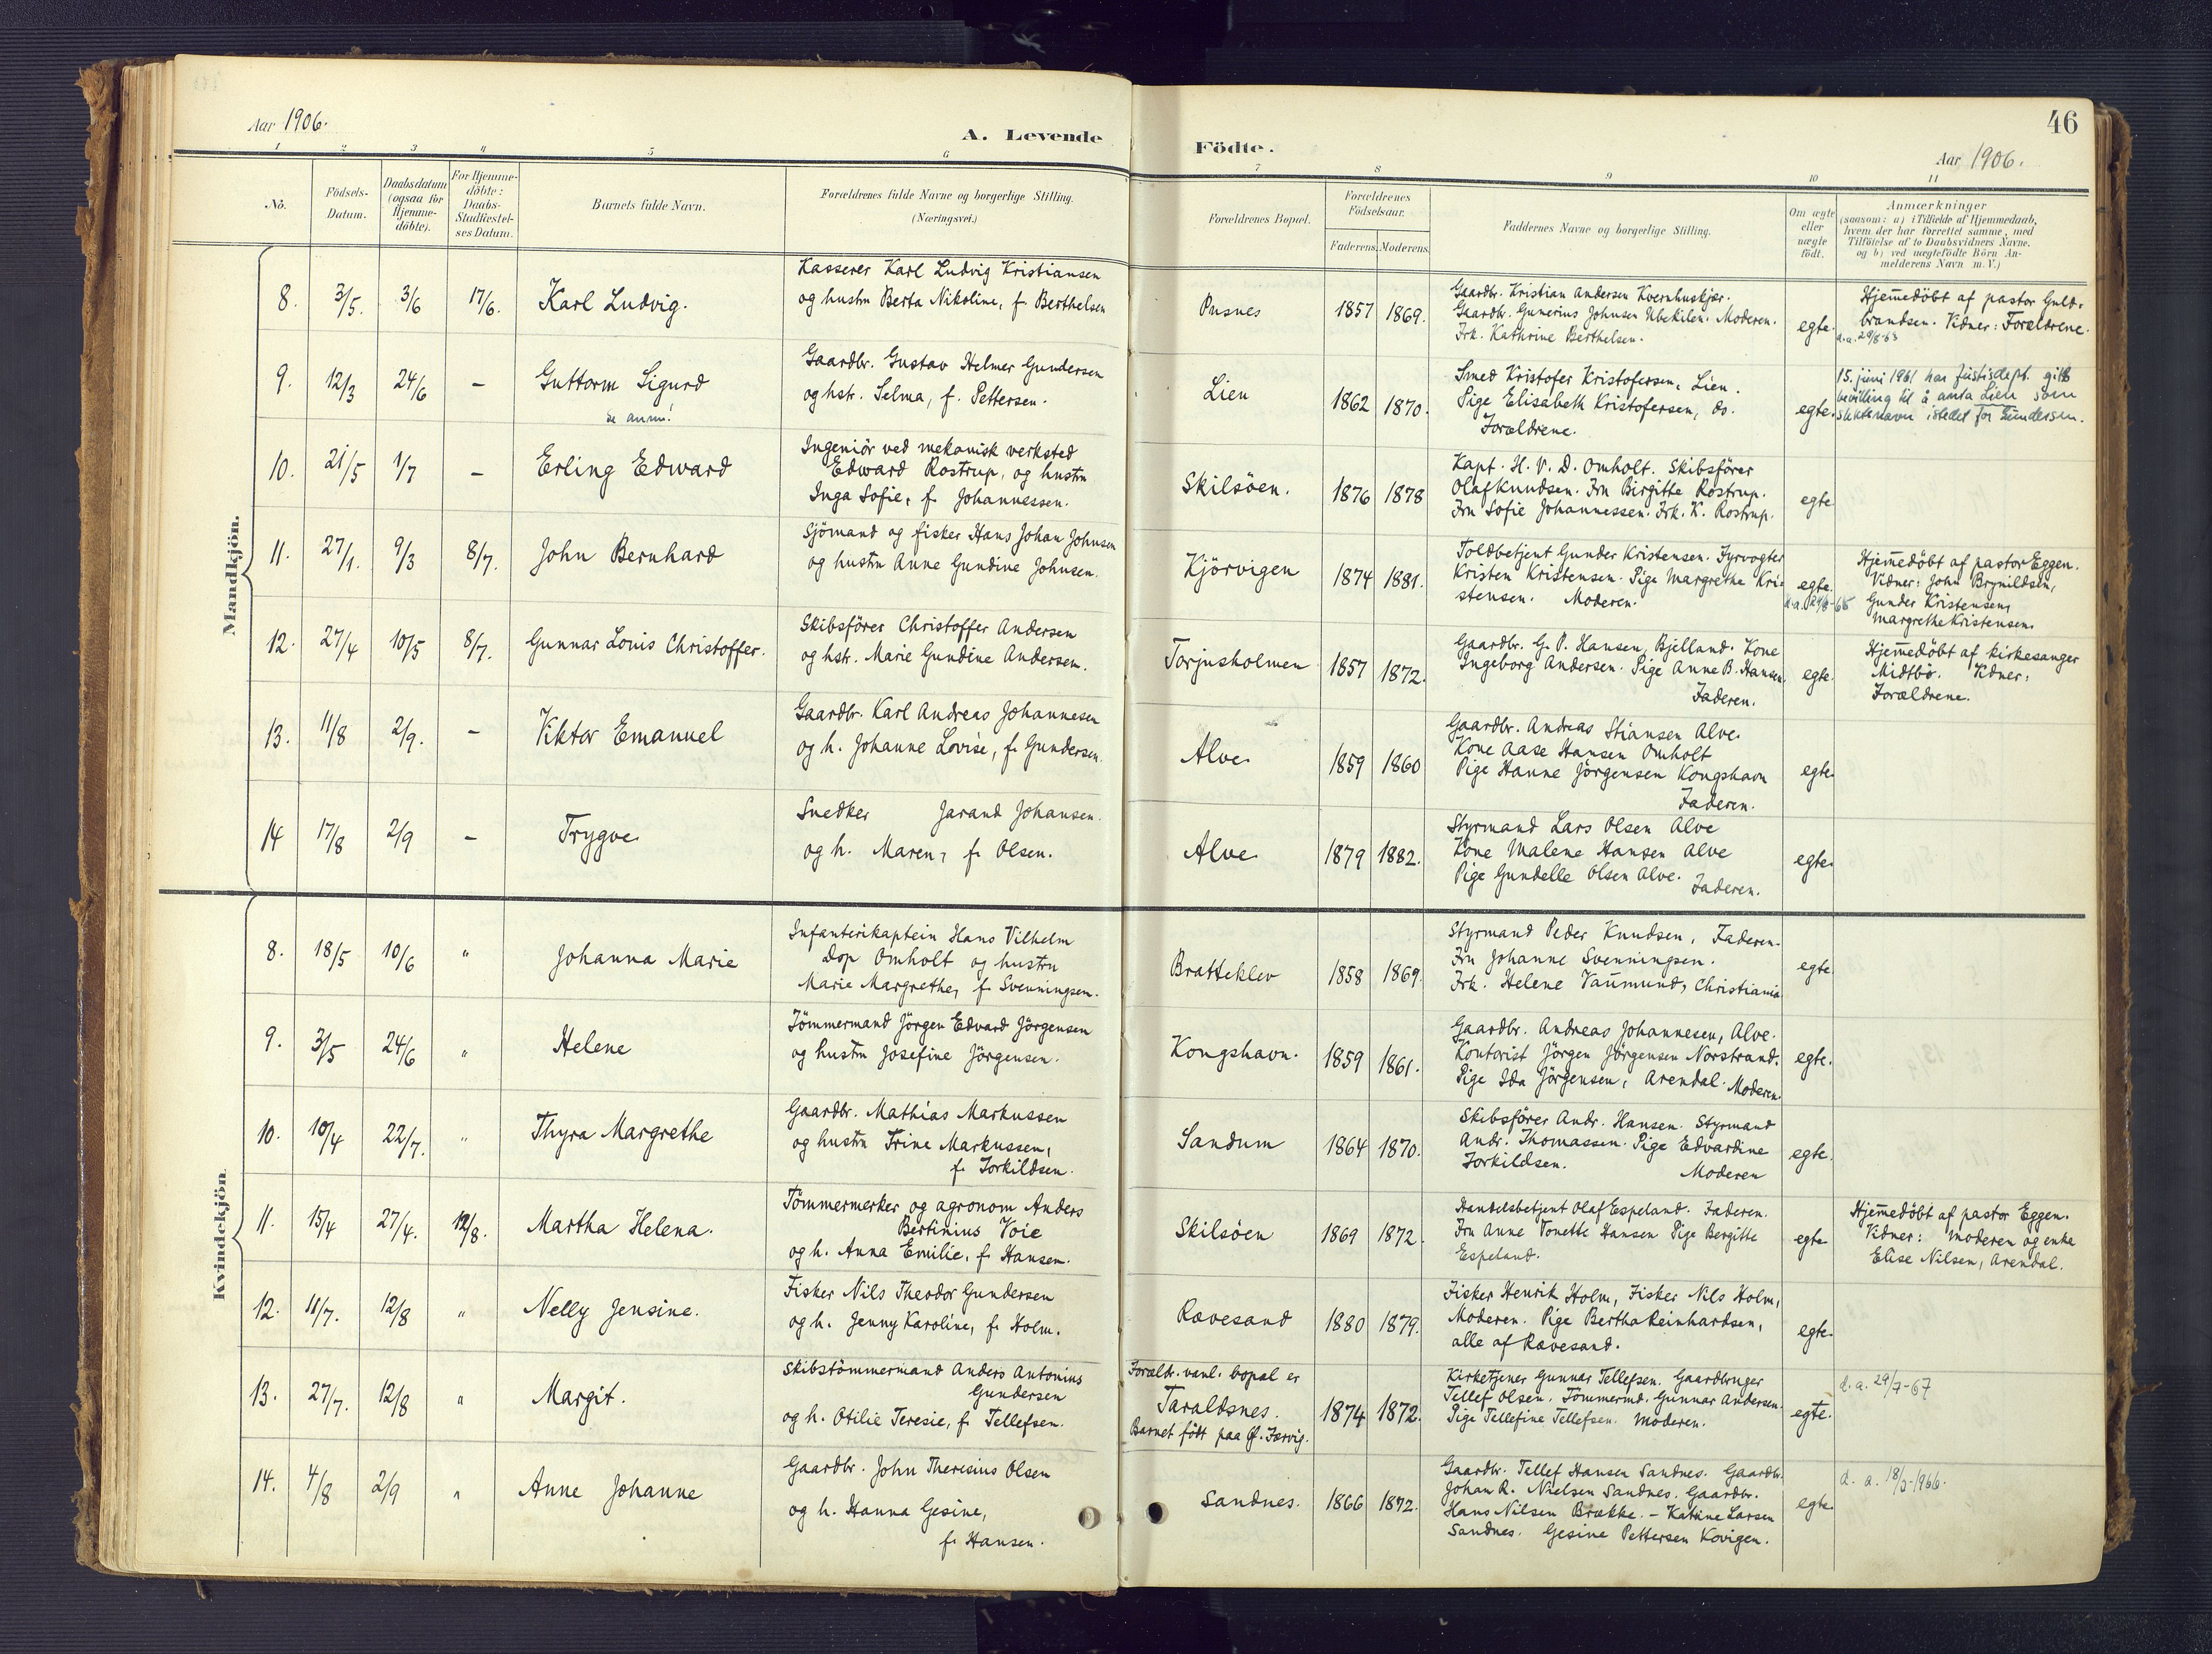 Aar 1906.
A. Levende
Födte.
46
Aar 1906.
1 2 3 4 5 6 7 8 9 10 11
No.
Födsels-Datum.
Daabsdatum (ogsaa for Hjemme-döbte).
For Hjemme-döbte: Daabs-Stadfæstel-ses Datum.
Barnets fulde Navn.
Forældrenes fulde Navne og borgerlige Stilling. (Næringsvei.)
Forældrenes Bopæl.
Forældrenes Födselsaar.
Faderens. Moderens.
Faddernes Navne og borgerlige Stilling.
Om ægte eller uægte födt.
Anmærkninger
(saasom: a) i Tilfælde af Hjemmedaab,
hvem der har forrettet samme, med
Tilföielse af to Daabsvidners Navne.
og b) ved uægtefödte Börn An-
melderens Navn m. V.)
Mandkjön.
8. 3/5. 3/6 17/6. Karl Ludvig.
Kasserer Karl Ludvig Kristiansen
og hustru Berta Nikoline, f. Berthelsen
Pusnes 1857 1869.
Gaardbr. Kristian Andersen Kvernhuskjær.
Gaardb. Gunerius Johnsen Ubekilen. Moderen.
Frk. Kathrine Berthelsen.
egte.
Hjemedöbt af pastor Guld-
brandsen. Vidner: Forældrene.
d.a. 29/8-63
9. 12/3 24/6 – Guttorm Sigurd
se anm!
Gaardbr. Gustav Helmer Gundersen
og hstr. Selma, f. Pettersen.
Lien 1862 1870.
Smed Kristofer Kristofersen, Lien.
Pige Elisabeth Kristofersen, do.
Forældrene.
egte.
15. juni 1961 har Justisdept. gitt
bevilling til å anta Lien som
slektsnavn istedet for Gundersen.
10. 21/5 1/7 – Erling Edward
Ingeniör ved mekanisk verksted
Edward Rostrup, og hustru
Inga Sofie, f. Johannessen.
Skilsöen. 1876 1878
Kapt. H. V. D. Omholt. Skibsförer
Olaf Knudsen. Fru Birgitte Rostrup.
Fru Sofie Johannessen. Frk. K. Rostrup.
egte
11. 27/1. 9/3 8/7. John Bernhard
Sjömand og fisker Hans Johan Johnsen
og hustru Anne Gundine Johnsen.
Kjörvigen 1874 1881.
Toldbetjent Gunder Kristensen. Fyrvogter
Kristen Kristensen. Pige Margrethe Kri-
stensen. Moderen.
egte.
Hjemedöbt af pastor Eggen.
Vidner: John Brynildsen,
Gunder Kristensen,
Margrethe Kristensen.
12. 27/4 10/5 8/7. Gunnar Louis Christoffer.
Skibsförer Christoffer Andersen
og hstr. Marie Gundine Andersen.
Torjusholmen 1857 1872.
Gaardbr. G. P. Hansen, Bjelland. Kone
Ingeborg Andersen. Pige Anne B. Hansen.
Faderen.
egte.
Hjemedöbt af kirkesanger
Midtbö. Vidner:
Forældrene.
13. 11/8 2/9. – Viktor Emanuel
Gaardbr. Karl Andreas Johannesen
og h. Johanne Lovise, f. Gundersen.
Alve. 1859 1860
Gaardbr. Andreas Stiansen Alve.
Kone Aase Hansen Omholt
Pige Hanne Jörgensen Kongshavn
Faderen.
egte.
14 17/8 2/9 – Trygve
Snedker Jarand Johansen.
og h. Maren, f. Olsen.
Alve. 1879 1882.
Styrmand Lars Olsen Alve
Kone Malene Hansen Alve
Pige Gundelle Olsen Alve. Faderen.
egte.
Kvindekjön
8. 18/5 10/6 " Johanna Marie
Infanterikaptein Hans Vilhelm
Dop Omholt og hustru
Marie Margrethe, f. Svenningsen.
Bratteklev 1858 1869.
Styrmand Peder Knudsen, Faderen.
Fru Johanne Svenningsen.
Frk. Helene Vaumund, Christiania
egte
9. 3/5 24/6 " Helene
Tömmermand Jörgen Edvard Jörgensen
og hustru Josefine Jörgensen.
Kongshavn. 1859 1861.
Gaardbr. Andreas Johannesen, Alve.
Kontorist Jörgen Jörgensen Norstrand.
Pige Ida Jörgensen, Arendal. Moderen.
egte.
10. 10/4 22/7. " Thyra Margrethe
Gaardbr. Mathias Markussen
og hustru Trine Markussen,
f. Torkildsen.
Sandum 1864 1870.
Skibsförer Andr. Hansen. Styrmand
Andr. Thomassen. Pige Edvardine
Torkildsen. Moderen
egte.
11. 15/4 27/4. 12/8. Martha Helena.
Tömmermerker og agronom Anders
Bertinius Voie
og h. Anna Emilie, f. Hansen.
Skilsöen 1869 1872.
Handelsbetjent Olaf Espeland. Faderen.
Fru Anne Tonette Hansen Pige Bergitte
Espeland.
egte
Hjemedöbt af pastor Eggen.
Vidner: Moderen og enke
Elise Nilsen, Arendal.
12. 11/7. 12/8 " Nelly Jensine.
Fisker Nils Theodor Gundersen
og h. Jenny Karoline, f. Holm.
Rævesand 1880 1879.
Fisker Henrik Holm, Fisker Nils Holm,
Moderen. Pige Bertha Reinhardsen,
alle af Rævesand.
egte.
13. 27/7. 12/8 " Margit.
Skibstömmermand Anders Antonius
Gundersen
og h. Otilie Teresie, f. Tellefsen.
Forældr. vanl. bopæl er
Taraldsnes.
Barnet födt paa Ø. Færvig.
1874 1872.
Kirketjener Gunnar Tellefsen. Gaardbruger
Tellef Olsen. Tömmermd. Gunnar Andersen.
Pige Tellefine Tellefsen. Moderen.
egte.
d. a. 29/7-67
14. 4/8 2/9 " Anne Johanne
Gaardbr. John Theresius Olsen
og h. Hanna Gesine,
f. Hansen.
Sandnes. 1866 1872.
Gaardbr. Tellef Hansen Sandnes. Gaardbr.
Johan R. Nielsen Sandnes. Gaardbr.
Hans Nilsen Brække. – Katrine Larsen
Sandnes. Gesine Pettersen Kovigen.
egte
d. a. 18/3-1966.